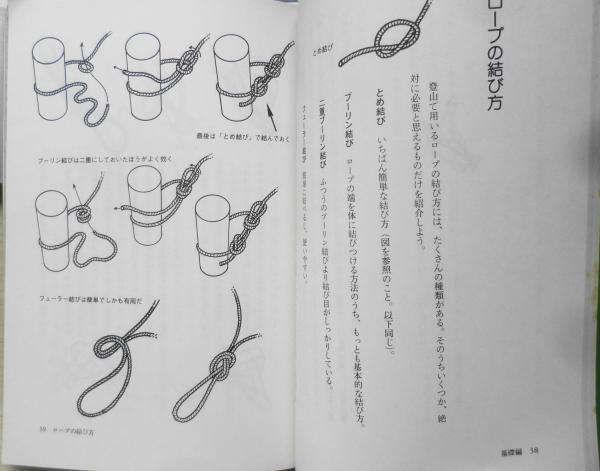 ロープの結び方
登山で用いるロープの結び方には、たくさんの種類がある。そのうちいくつか、絶
対に必要と思えるものだけを紹介しよう。
とめ結び いちばん簡単な結び方（図を参照のこと。以下同じ）。
ブーリン結び ロープの端を体に結びつける方法のうち、もっとも基本的な結び方。
二重ブーリン結び ふつうのブーリン結びより結び目がしっかりしている。
フューラー結び 簡単に結べるし、使いやすい。
とめ結び
基礎編 38
最後は「とめ結び」で結んでおく
ブーリン結びは二重にしておいたほうがよく効く
フューラー結びは簡単でしかも有用だ
39 ロープの結び方